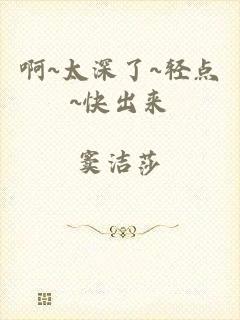 啊~太深了~轻点
~快出来
窦洁莎